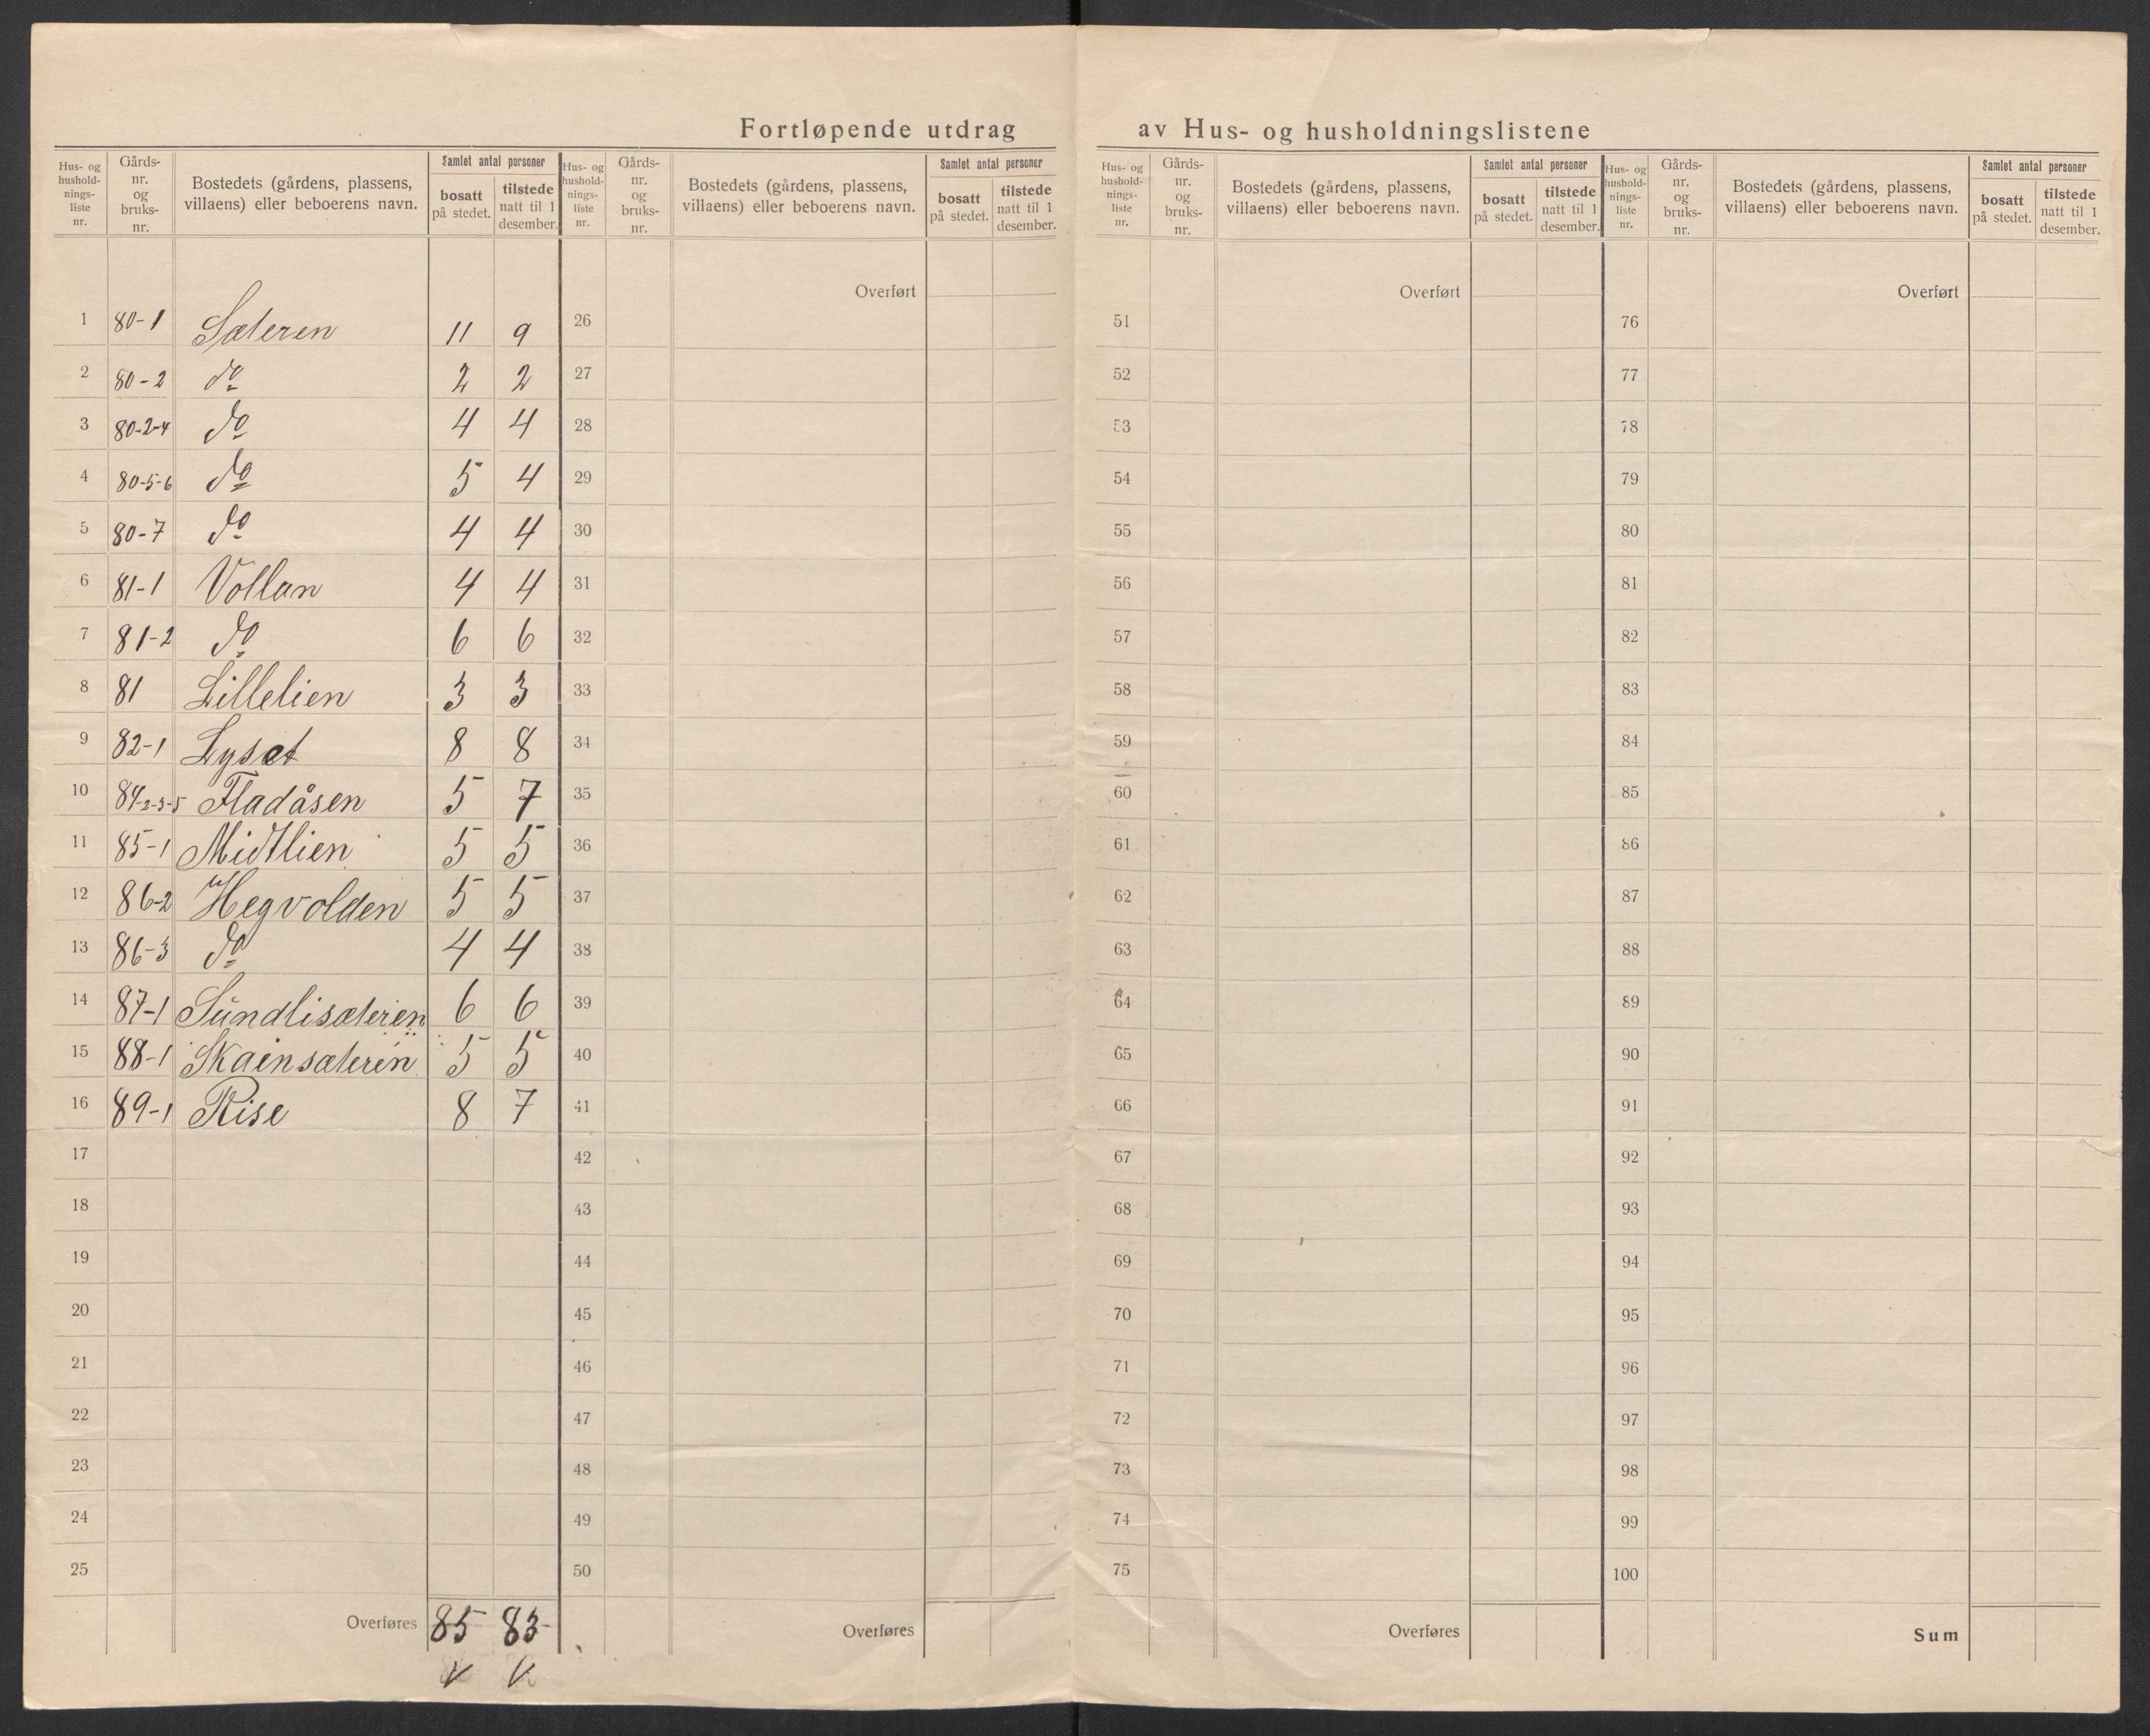 Fortløpende utdrag av Hus- og husholdningslistene
Hus- og hushold-nings-liste nr. Gårds-nr. og bruks-nr. Bostedets (gårdens, plassens, villaens) eller beboerens navn. Samlet antal personer bosatt på stedet. tilstede natt til 1 desember.
Hus- og hushold-nings-liste nr. Gårds-nr. og bruks-nr. Bostedets (gårdens, plassens, villaens) eller beboerens navn. Samlet antal personer bosatt på stedet. tilstede natt til 1 desember.
Hus- og hushold-nings-liste nr. Gårds-nr. og bruks-nr. Bostedets (gårdens, plassens, villaens) eller beboerens navn. Samlet antal personer bosatt på stedet. tilstede natt til 1 desember.
Hus- og hushold-nings-liste nr. Gårds-nr. og bruks-nr. Bostedets (gårdens, plassens, villaens) eller beboerens navn. Samlet antal personer bosatt på stedet. tilstede natt til 1 desember.
1 80-1 Sæteren 11 9
2 80-2 do 2 2
3 80-2-4 do 4 4
4 80-5-6 do 5 4
5 80-7 do 4 4
6 81-1 Vollan 4 4
7 81-2 do 6 6
8 81 Lillelien 3 3
9 82-1 Lyset 8 8
10 84-2-3-5 Fladåsen 5 7
11 85-1 Midtlien 5 5
12 86-2 Hegvolden 5 5
13 86-3 do 4 4
14 87-1 Sundlisæteren 6 6
15 88-1 Skainsæteren 5 5
16 89-1 Rise 8 7
17
18
19
20
21
22
23
24
25
Overføres 85 83
Overført
26
27
28
29
30
31
32
33
34
35
36
37
38
39
40
41
42
43
44
45
46
47
48
49
50
Overføres
Overført
51
52
53
54
55
56
57
58
59
60
61
62
63
64
65
66
67
68
69
70
71
72
73
74
75
Overføres
Overført
76
77
78
79
80
81
82
83
84
85
86
87
88
89
90
91
92
93
94
95
96
97
98
99
100
Sum